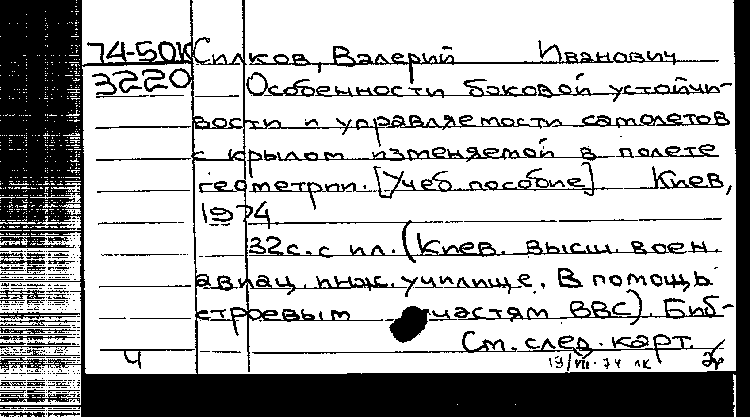 74-50К Силков, Валерий Иванович
3220 Особенности боковой устойчи-
вости и управляемости самолетов
с крылом изменяемой в полете
геометрии. [Учеб. пособие]. Киев,
1974
32с. с ил. (Киев. высш. воен.
авиац. инж. училище. В помощь
строевым частям ВВС). Биб-
См. след. карт.
4 19/VIII-74 ЛК